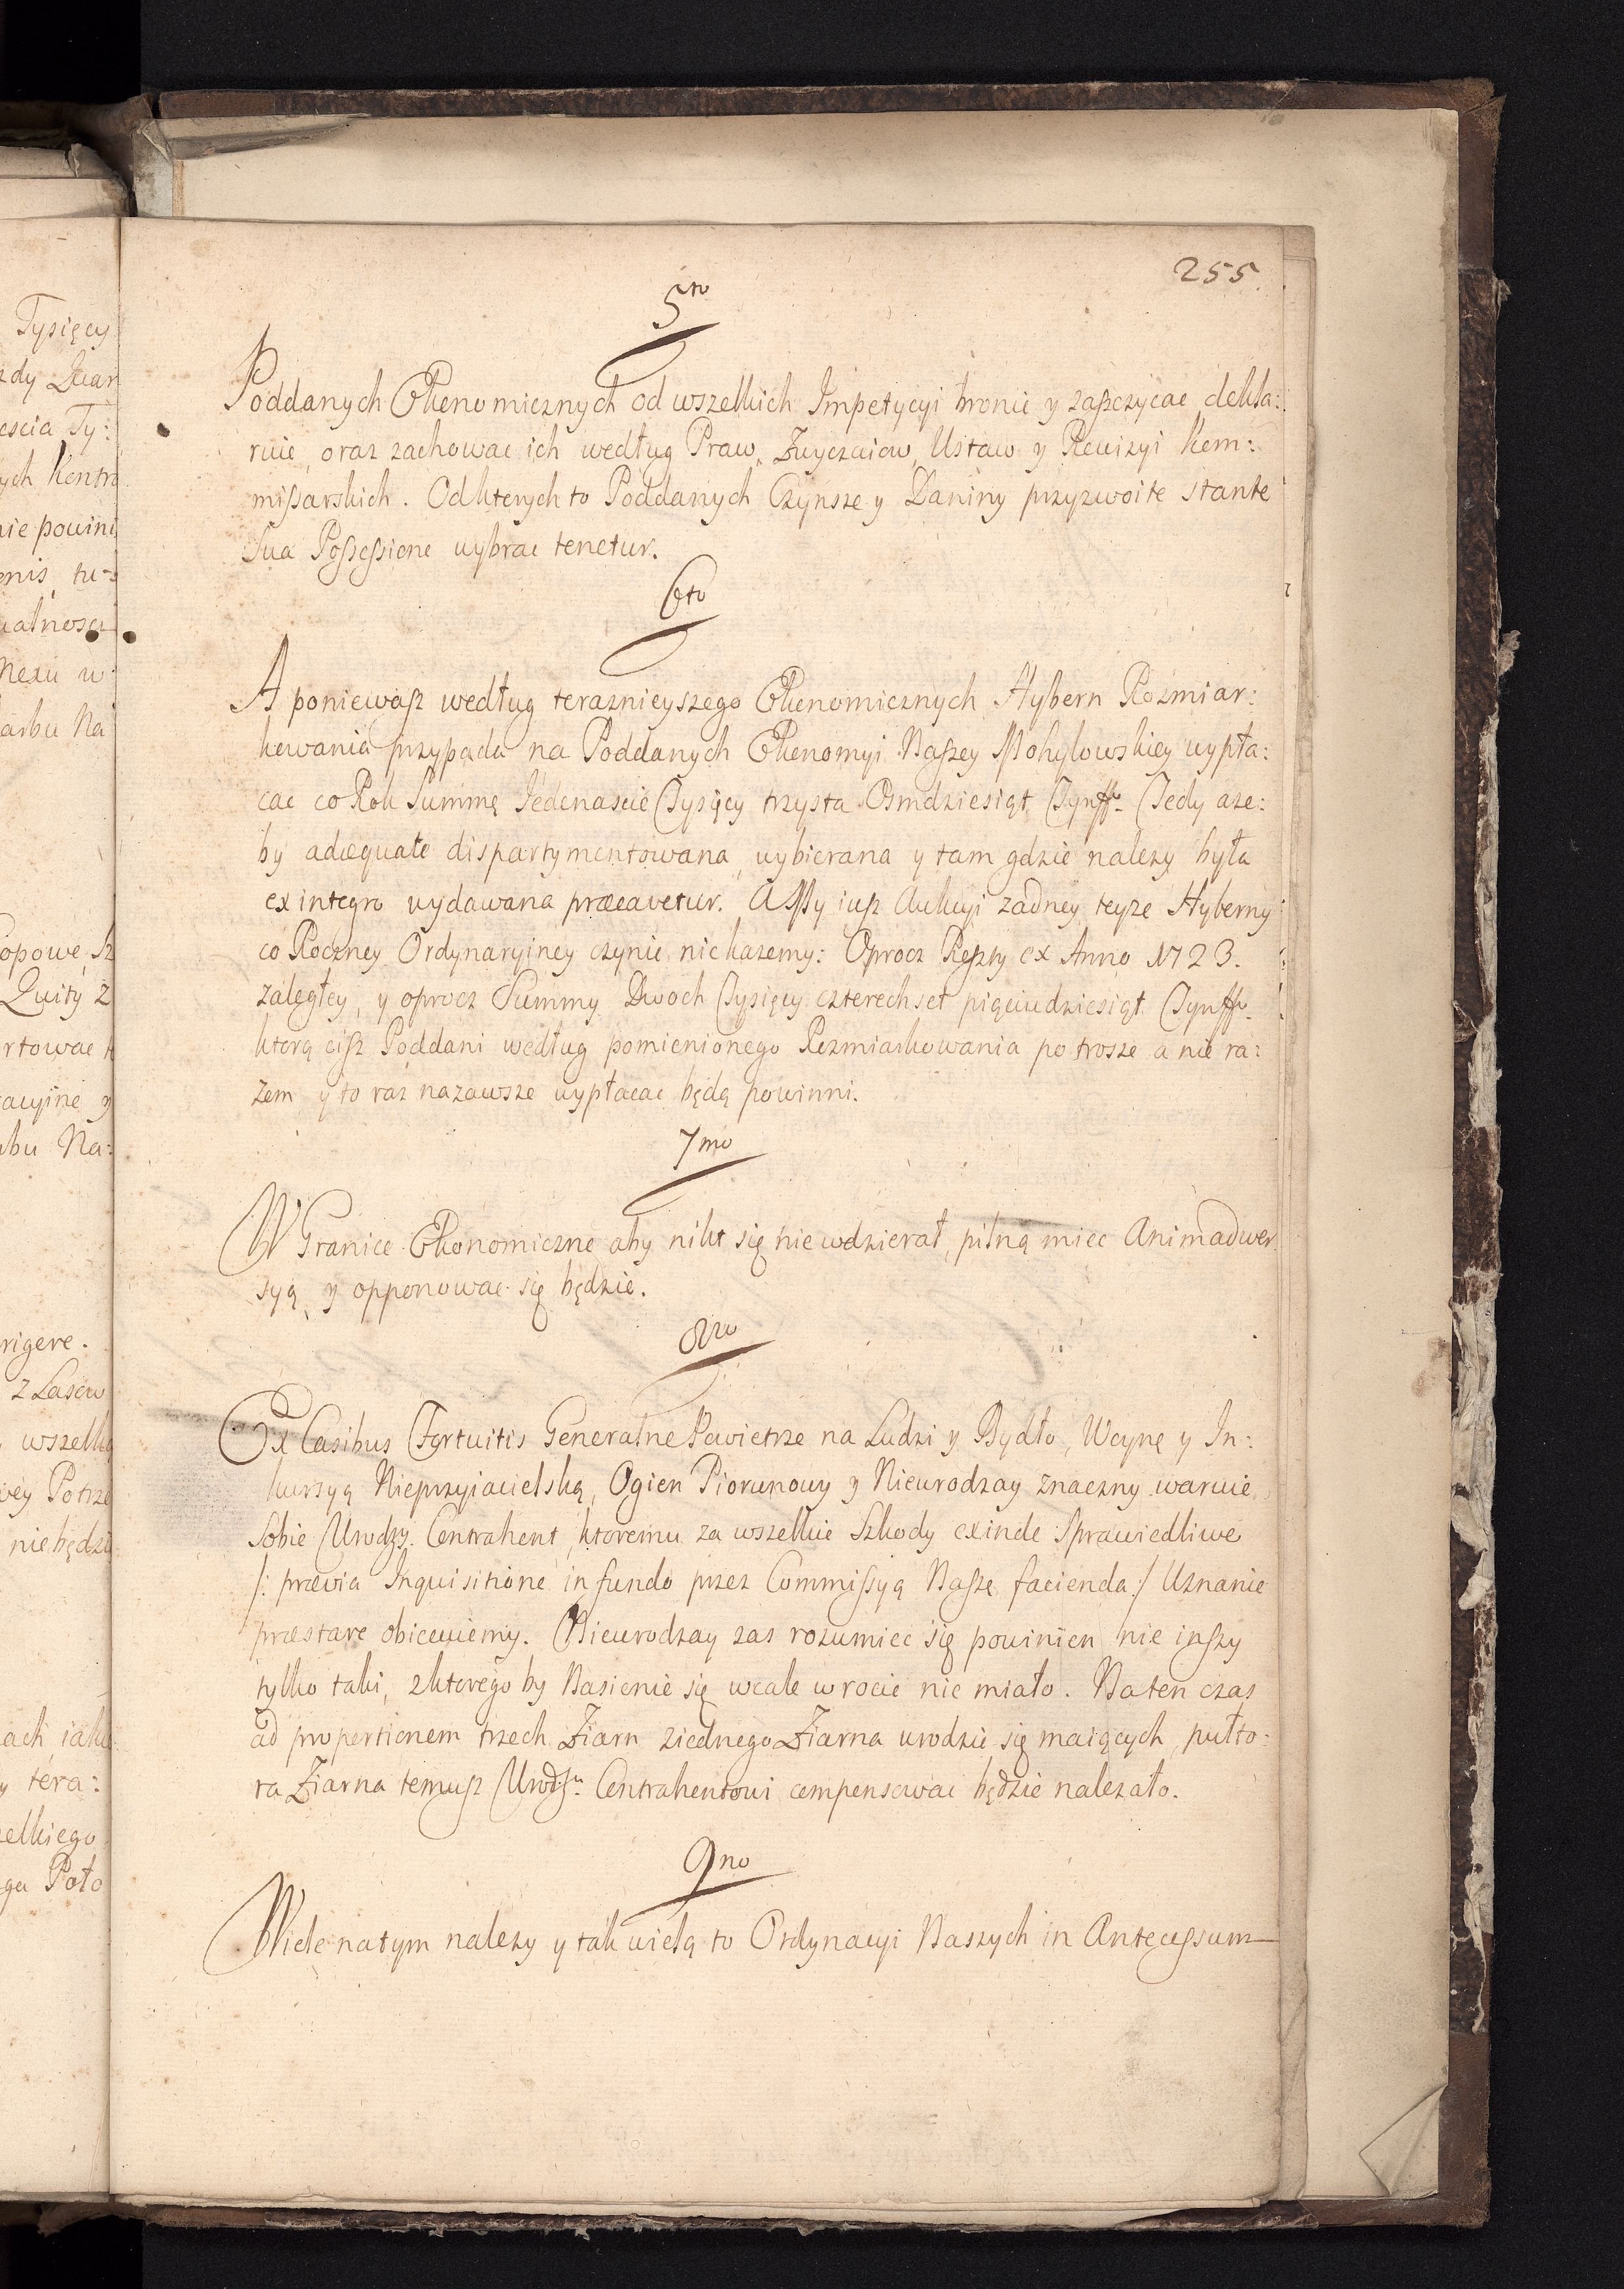 255.
5to
Poddanych Ekonomicznych od wszelkich Impetycyi bronic y zaszczycac dekla:
ruie, oraz zachowac ich według Praw, Zwyczaiow, Ustaw y Rewizyi Kom:
missarskich. Od ktorych to Poddanych Czynsze y Daniny przyzwoite stante
Sua Possessione wybrac tenetur.
6to
A poniewasz według teraznieyszego Ekonomicznych Hybern Rozmiar:
kowania przypada na Poddanych Ekonomyi Naszey Mohylowskiey wypła:
cac co Rok Summę Jedenascie Tysięcy trzysta Osmdziesiąt Tynff. Tedy aze:
by adæquate dispartymentowana, wybierana y tam gdzie nalezy była
ex integro wydawana præcavetur. A My iusz Aukcyi zadney teyze Hyberny
co Roczney Ordynaryiney czynic nie kazemy: Oprocz Reszty ex Anno 1723.
zaległey, y oprocz Summy Dwoch Tysięcy czterechset pięciudziesiąt Tynff.
ktorą cisz Poddani według pomienionego Rozmiarkowania po trosze a nie ra:
zem y to raz nazawsze wypłacac będą powinni.
7mo
W Granice Ekonomiczne aby nikt się nie wdzierał, pilną miec Animadwer
syą, y opponowac się będzie.
8vo
Ex Casibus Fortuitis Generalne Powietrze na Ludzi y Bydło, Woynę y In:
kursyą Nieprzyiacielską, Ogien Piorunowy y Nieurodzay znaczny waruie
Sobie Urodzy. Contrahent, ktoremu za wszelkie Szkody exinde Sprawiedliwe
/: prævia Inquisitione in fundo przez Commissyą Naszę facienda :/ Uznanie
præstare obiecuiemy. Nieurodzay zas rozumiec się powinien nie inszy
tylko taki, z ktorego by Nasienie się wcale wrocic nie miało. Na ten czas
ad proportionem trzech Ziarn z iednego Ziarna urodzic się maiących, pułto:
ra Ziarna temusz Urodzu. Contrahentowi compensowac będzie nalezało.
9no
Wiele na tym nalezy y tak wielą to Ordynacyi Naszych in Antecessum